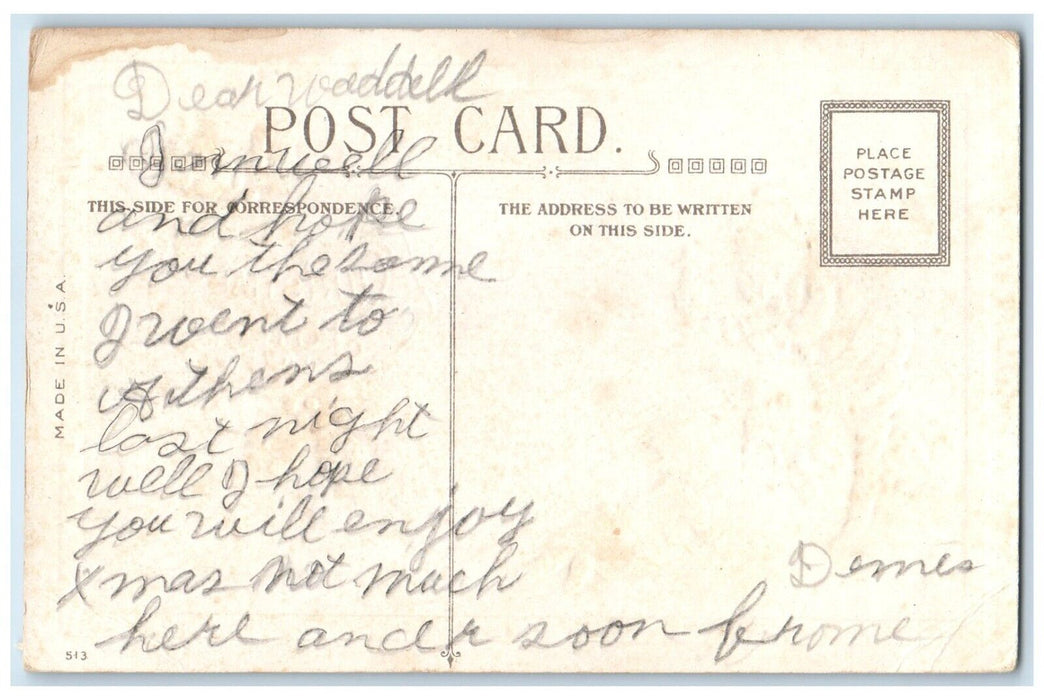 Dear waddell
POST CARD.
I am well
THIS SIDE FOR CORRESPONDENCE.
and hope
you the same
I went to
Athens
last night
well I hope
you will enjoy
xmas not much
here and r soon frome
Demes
THE ADDRESS TO BE WRITTEN
ON THIS SIDE.
PLACE
POSTAGE
STAMP
HERE
MADE IN U.S.A.
513